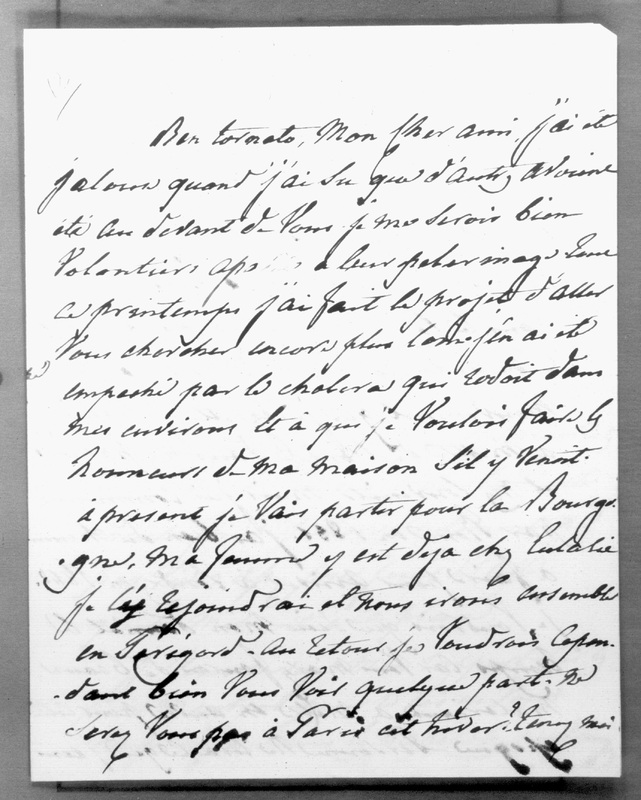 Ben tornato, Mon Cher ami, j'ai été
jaloux quand j'ai su que d'autres avoient
été au devant de Vous je me serois bien
Volontiers à leur pelerinage tout
ce printemps j'ai fait le projet d'aller
Vous chercher encore plus loin j'en ai été
empeché par le cholera qui rodoit dans
mes environs et à qui je Voulois faire les
honneurs de ma maison S'il y Venoit
à present je Vais partir pour la Bourgo-
-gne, ma femme y est deja chez Eulalie
je l'y rejoindrai et nous irons ensemble
en Périgord - au retour je Voudrois Cepen-
-dant bien Vous Voir quelque part - ne
Serez Vous pas à Paris cet hiver? tenez moi